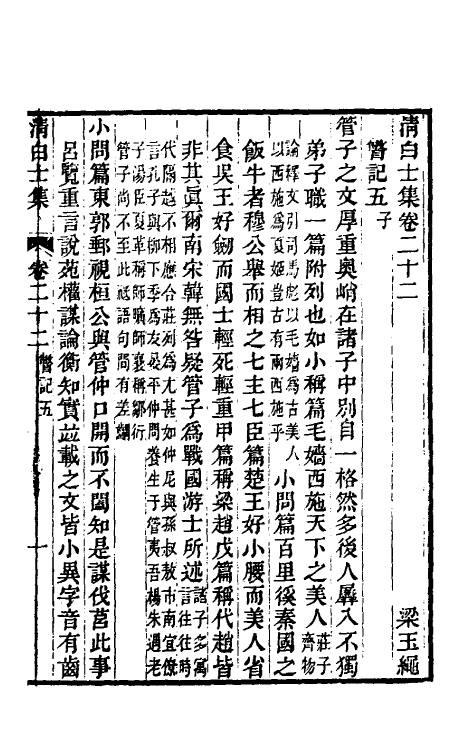 清白士集卷二十二
梁玉繩
瞥記五子
管子之文厚重奧峭在諸子中別自一格然多後人羼入不獨
弟子職一篇附列也如小稱篇毛嬙西施天下之美人莊子齊物
論釋文引司馬彪以毛嬙爲古美人
以西施爲夏姬豈古有兩西施乎小問篇百里徯秦國之
飯牛者穆公舉而相之七主七臣篇楚王好小腰而美人省
食吳王好劒而國士輕死輕重甲篇稱梁趙戊篇稱代趙皆
非其眞爾南宋韓無咎疑管子爲戰國游士所述諸子多寓言往往時
代隔越不相應合莊列爲尤甚如仲尼與孫叔敖市南宜僚
言孔子與柳下季爲友晏平仲問養生于管夷吾楊朱遇老
子湯臣夏革稱師曠師襄稱鄒衍
管子尚不至此祗語句閒有差爛
小問篇東郭郵視桓公與管仲口開而不闔知是謀伐莒此事
呂覽重言說苑權謀論衡知實竝載之文皆小異字音有齒
清白士集
卷二十二
瞥記五
一